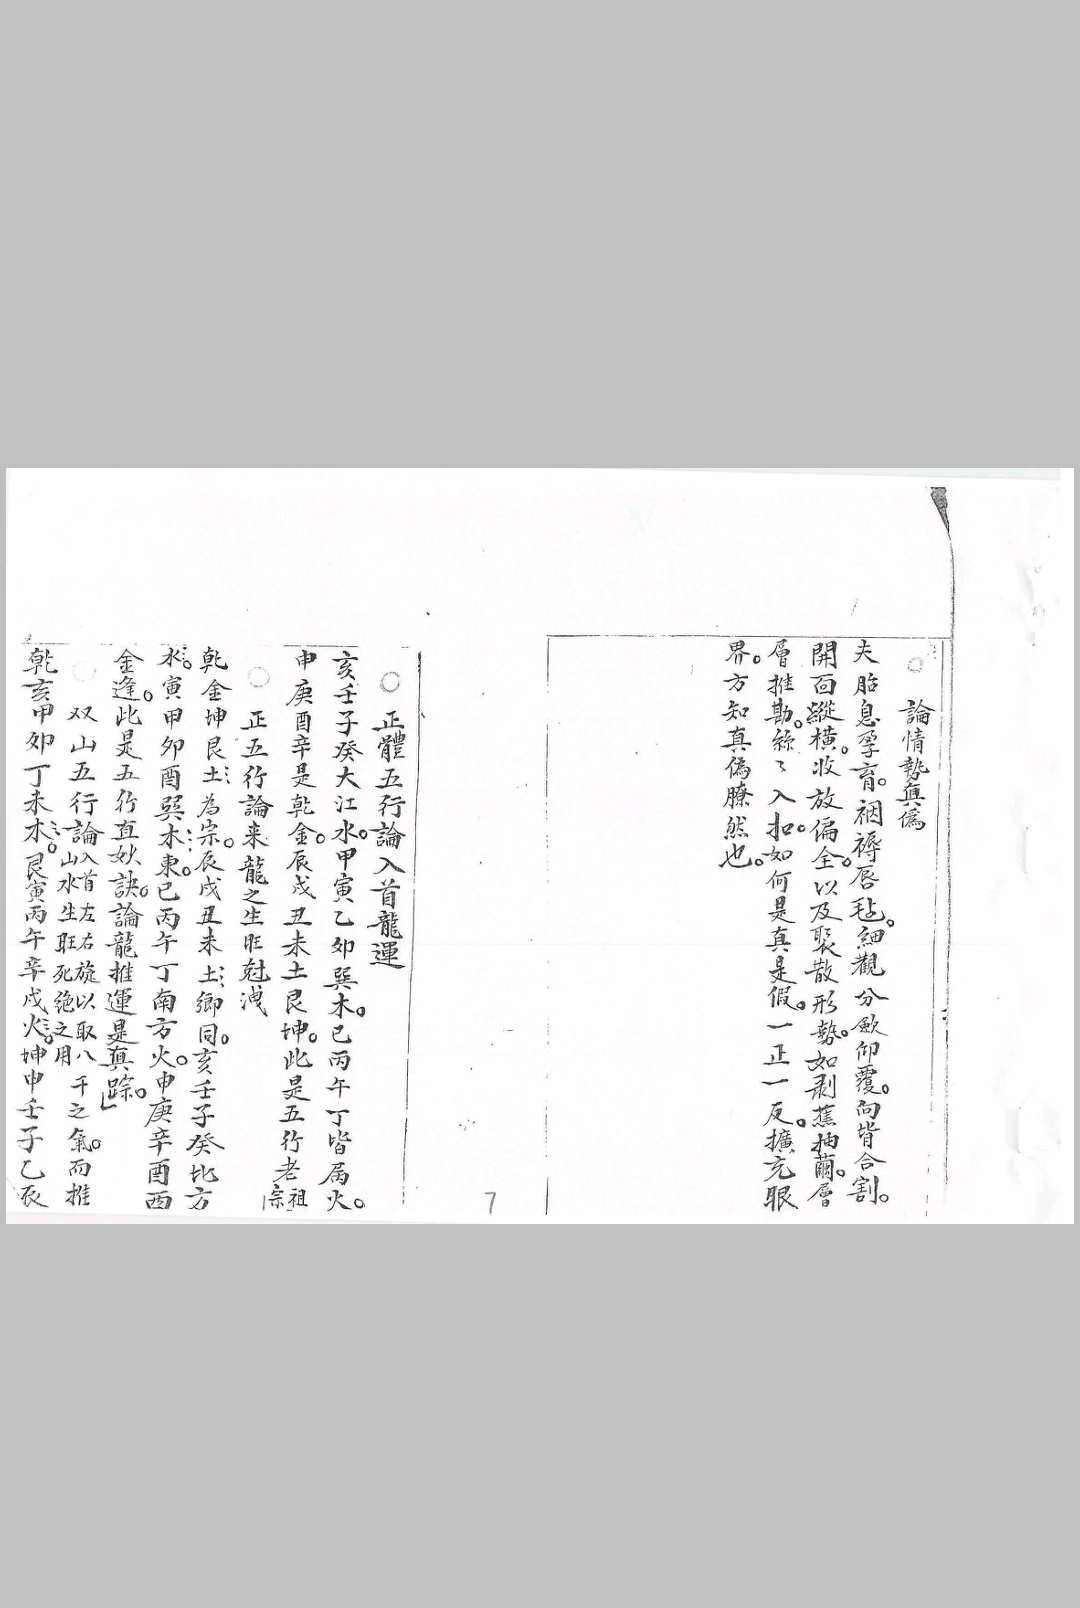 ○ 論情勢真偽
夫胎息孕育。裀褥唇毡。細觀分歛仰覆。向背合割。
開面縱橫。收放偏全。以及聚散形勢。如剥蕉抽繭。層
層推勘。絲〻入扣。如何是真是假。一正一反。擴充眼
界。方知真偽瞭然也。
○ 正體五行論入首龍運
亥壬子癸大江水。甲寅乙卯巽木。巳丙午丁皆属火。
申庚酉辛是乾金。辰戌丑未土艮坤。此是五行老祖宗
○ 正五行論来龍之生旺尅洩
乾金坤艮土為宗。辰戌丑未土鄉同。亥壬子癸北方
水。寅甲卯酉巽木東。巳丙午丁南方火。申庚辛酉西
金逢。此是五行直妙訣。論龍推運是真踪。」
○ 双山五行論入首左右旋以取八干之氣。而推山水生旺死絶之用
乾亥甲卯丁未木。艮寅丙午辛戌火。坤申壬子乙辰
7